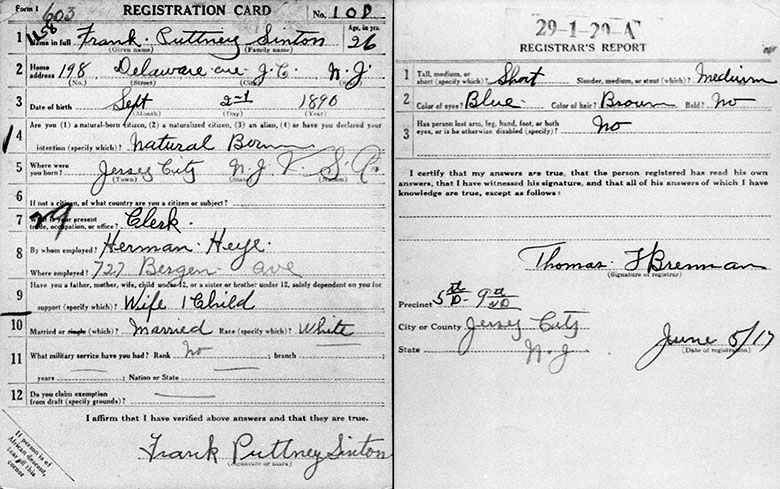 Form 1 603 REGISTRATION CARD No. 108
1158
1 Name in full Frank Puttney Sinton Age, in yrs. 26
(Given name) (Family name)
2 Home address 198 Delaware ave J.C. N.J.
(No.) (Street) (City) (State)
3 Date of birth Sept 21 1890
(Month) (Day) (Year)
4 Are you (1) a natural-born citizen, (2) a naturalized citizen, (3) an alien, (4) or have you declared your
intention (specify which)? Natural Born
5 Where were you born? Jersey City N.J. U.S.A.
(Town) (State) (Nation)
6 If not a citizen, of what country are you a citizen or subject?
7 What is your present trade, occupation, or office? Clerk.
8 By whom employed? Herman Heye
Where employed? 727 Bergen ave
9 Have you a father, mother, wife, child under 12, or a sister or brother under 12, solely dependent on you for
support (specify which)? Wife 1 Child
10 Married or single (which)? Married Race (specify which)? White
11 What military service have you had? Rank No ; branch ;
years ; Nation or State
12 Do you claim exemption from draft (specify grounds)?
I affirm that I have verified above answers and that they are true.
Frank Puttney Sinton
(Signature or mark)
If person is of
African descent,
tear off this
corner
29-1-29-A
REGISTRAR'S REPORT
1 Tall, medium, or short (specify which)? Short Slender, medium, or stout (which)? Medium
2 Color of eyes? Blue Color of hair? Brown Bald? No
3 Has person lost arm, leg, hand, foot, or both
eyes, or is he otherwise disabled (specify)? No
I certify that my answers are true, that the person registered has read his own
answers, that I have witnessed his signature, and that all of his answers of which I have
knowledge are true, except as follows:
Thomas F Brennan
(Signature of registrar)
Precinct 5th D - 9th WD
City or County Jersey City
State N.J June 5/17
(Date of registration)